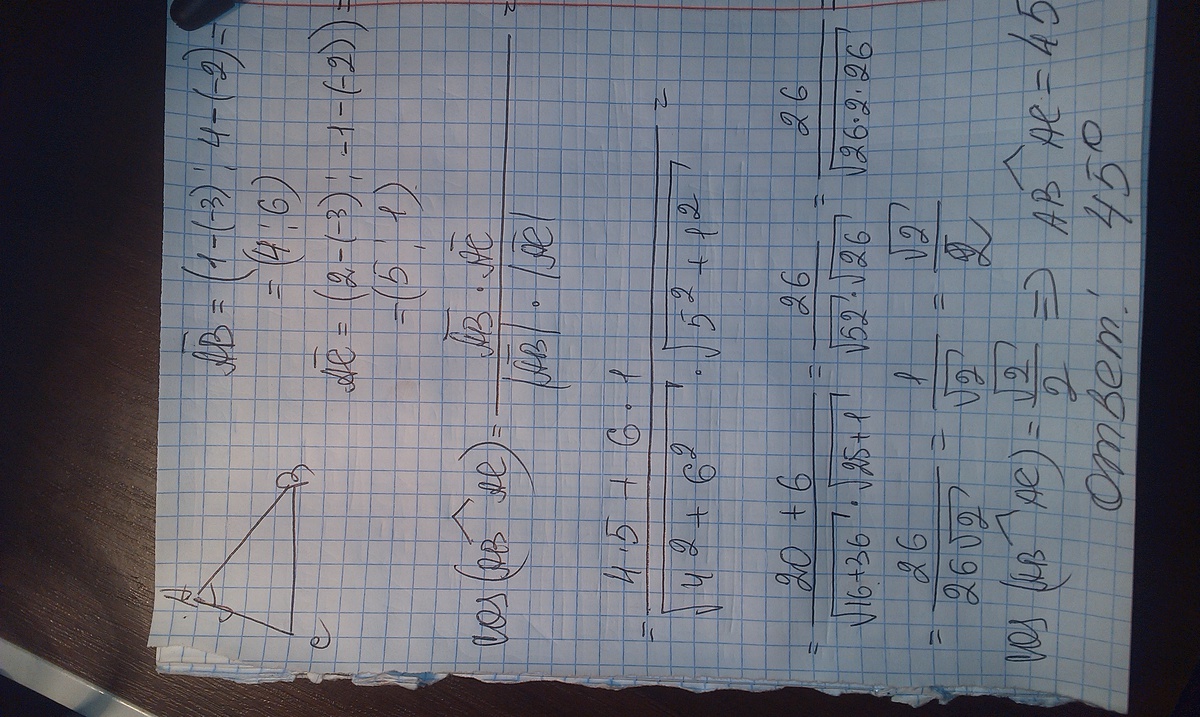 A
B
C
A̅B̅ = (1-(-3); 4-(-2)) =
= (4; 6)
A̅C̅ = (2-(-3); -1-(-2)) =
= (5; 1)
cos(AB^AC) = A̅B̅ · A̅C̅ / |A̅B̅| · |A̅C̅| =
= 4·5 + 6·1 / √(4² + 6²) · √(5² + 1²) =
= 20 + 6 / √(16+36) · √(25+1) = 26 / √52 · √26 = 26 / √(26·2·26) =
= 26 / 26√2 = 1 / √2 = √2 / 2
cos(AB^AC) = √2 / 2 ⇒ AB^AC = 45
Ответ: 45°